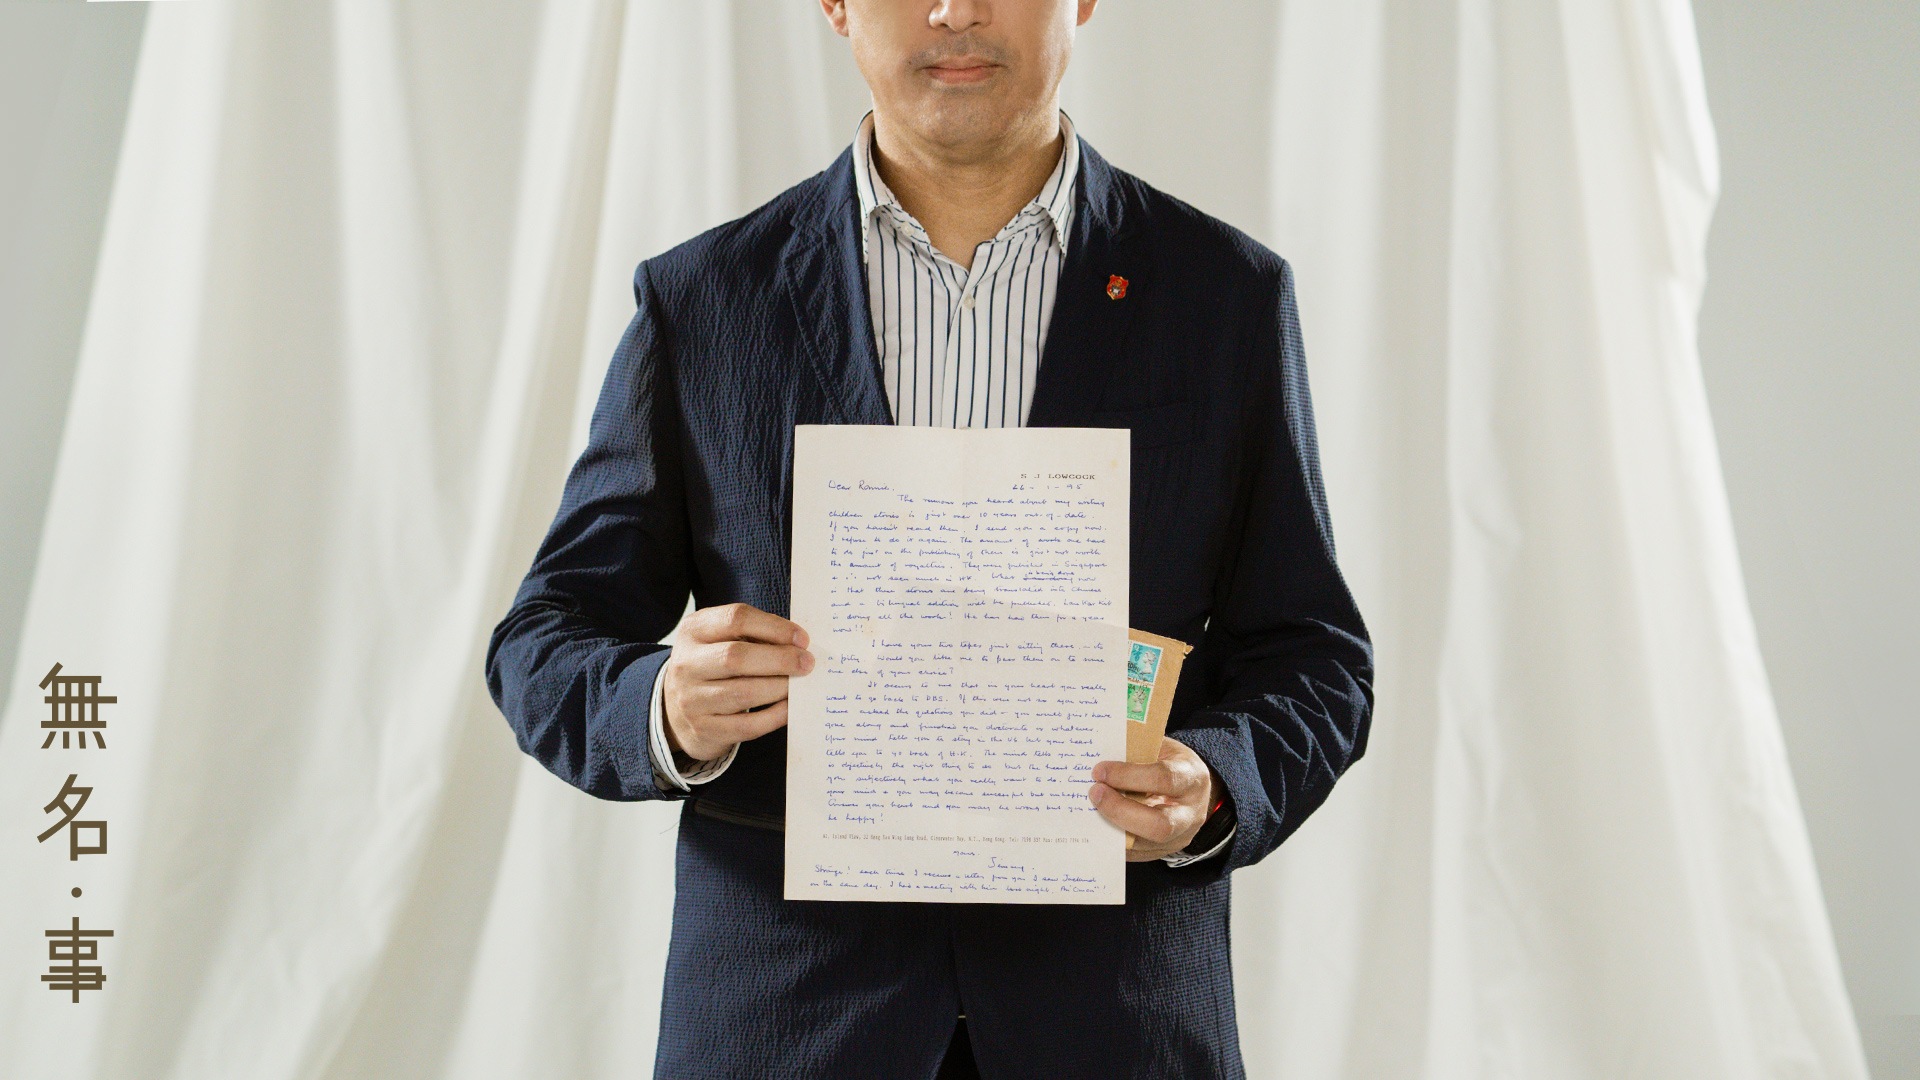 S J LOWCOCK
26 - 1 - 95
Dear Ronnie,
The rumours you heard about my writing
children stories is just over 10 years out-of-date.
If you haven't read them, I send you a copy now.
I refuse to do it again. The amount of work one have
to do just on the publishing of them is just not worth
the amount of royalties. They were published in Singapore
+ it's not seen much in HK. What is being done now
is that these stories are being translated into Chinese
and a bilingual edition will be published.
is doing all the work! He has had them for a year
now!!
I have your two tapes just sitting there. — its
a pity. Would you like me to pass them on to some
one else of your choice?
It occurs to me that in your heart you really
want to go back to DBS. If this were not so you won't
have asked the questions you did — you would just have
gone along and finished your doctorate or whatever.
Your mind tells you to stay in the US but your heart
tells you to go back to H-K. The mind tells you what
is objectively the right thing to do but the heart tells
you subjectively what you really want to do. Answer
your mind & you may become successful but unhappy.
Answer your heart and you may be wrong but you
be happy!
yours
Jimmy.
Strange! each time I receive a letter from you I saw
on the same day. I had a meeting with him last night.
無名·事